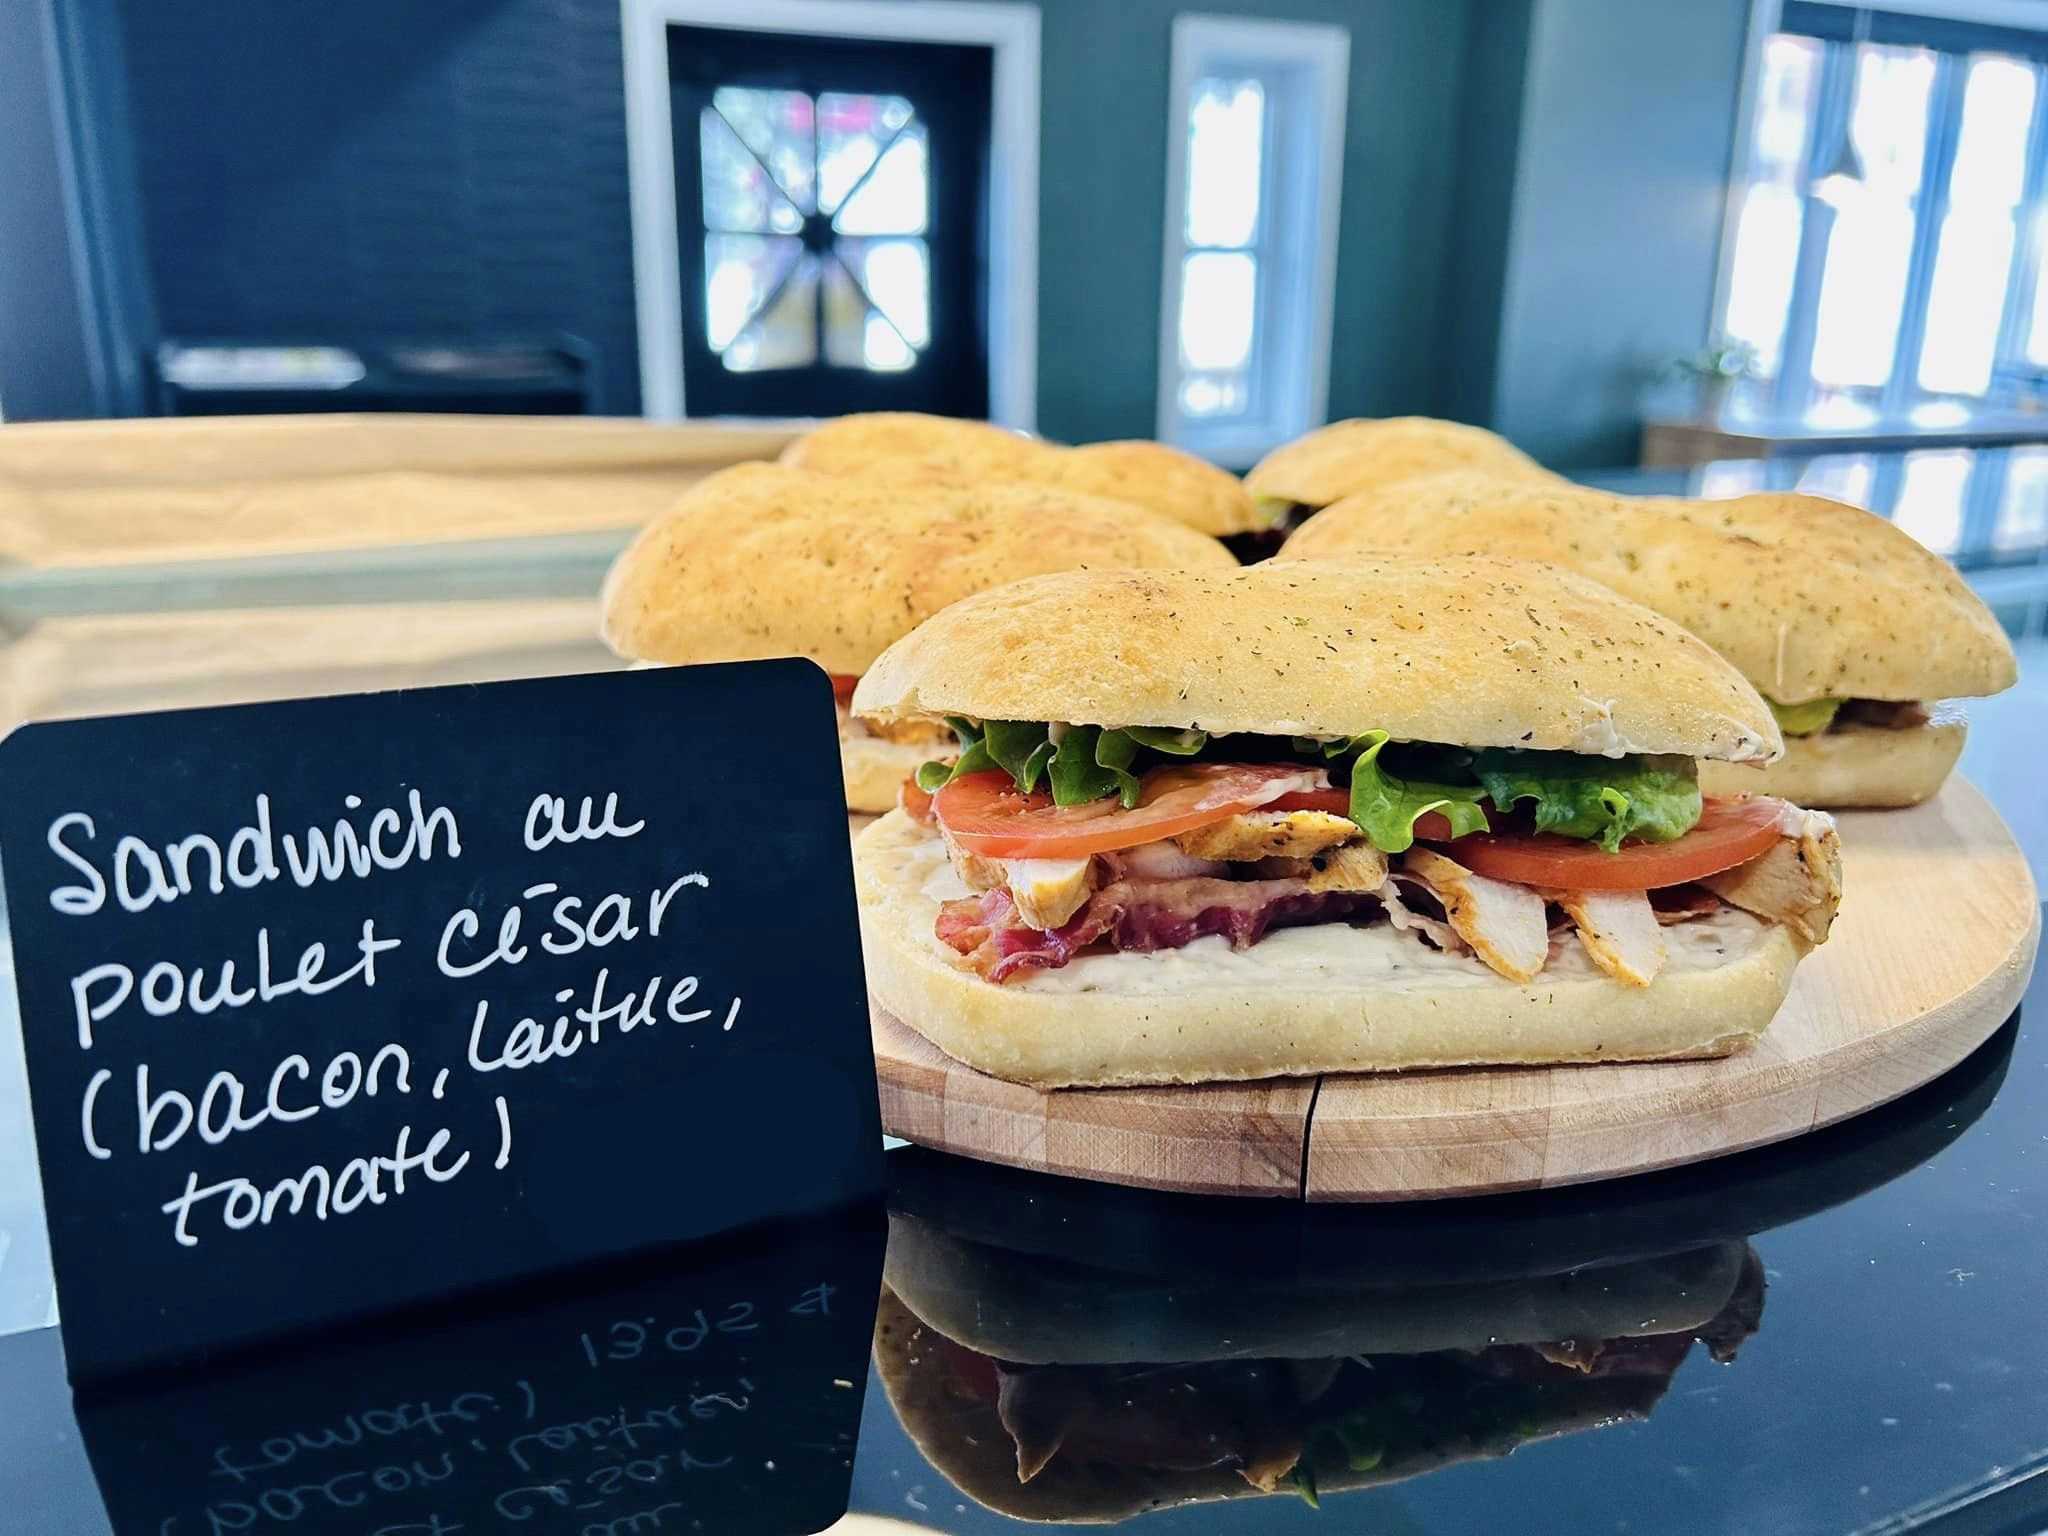 Sandwich au
poulet césar
(bacon, laitue,
tomate)